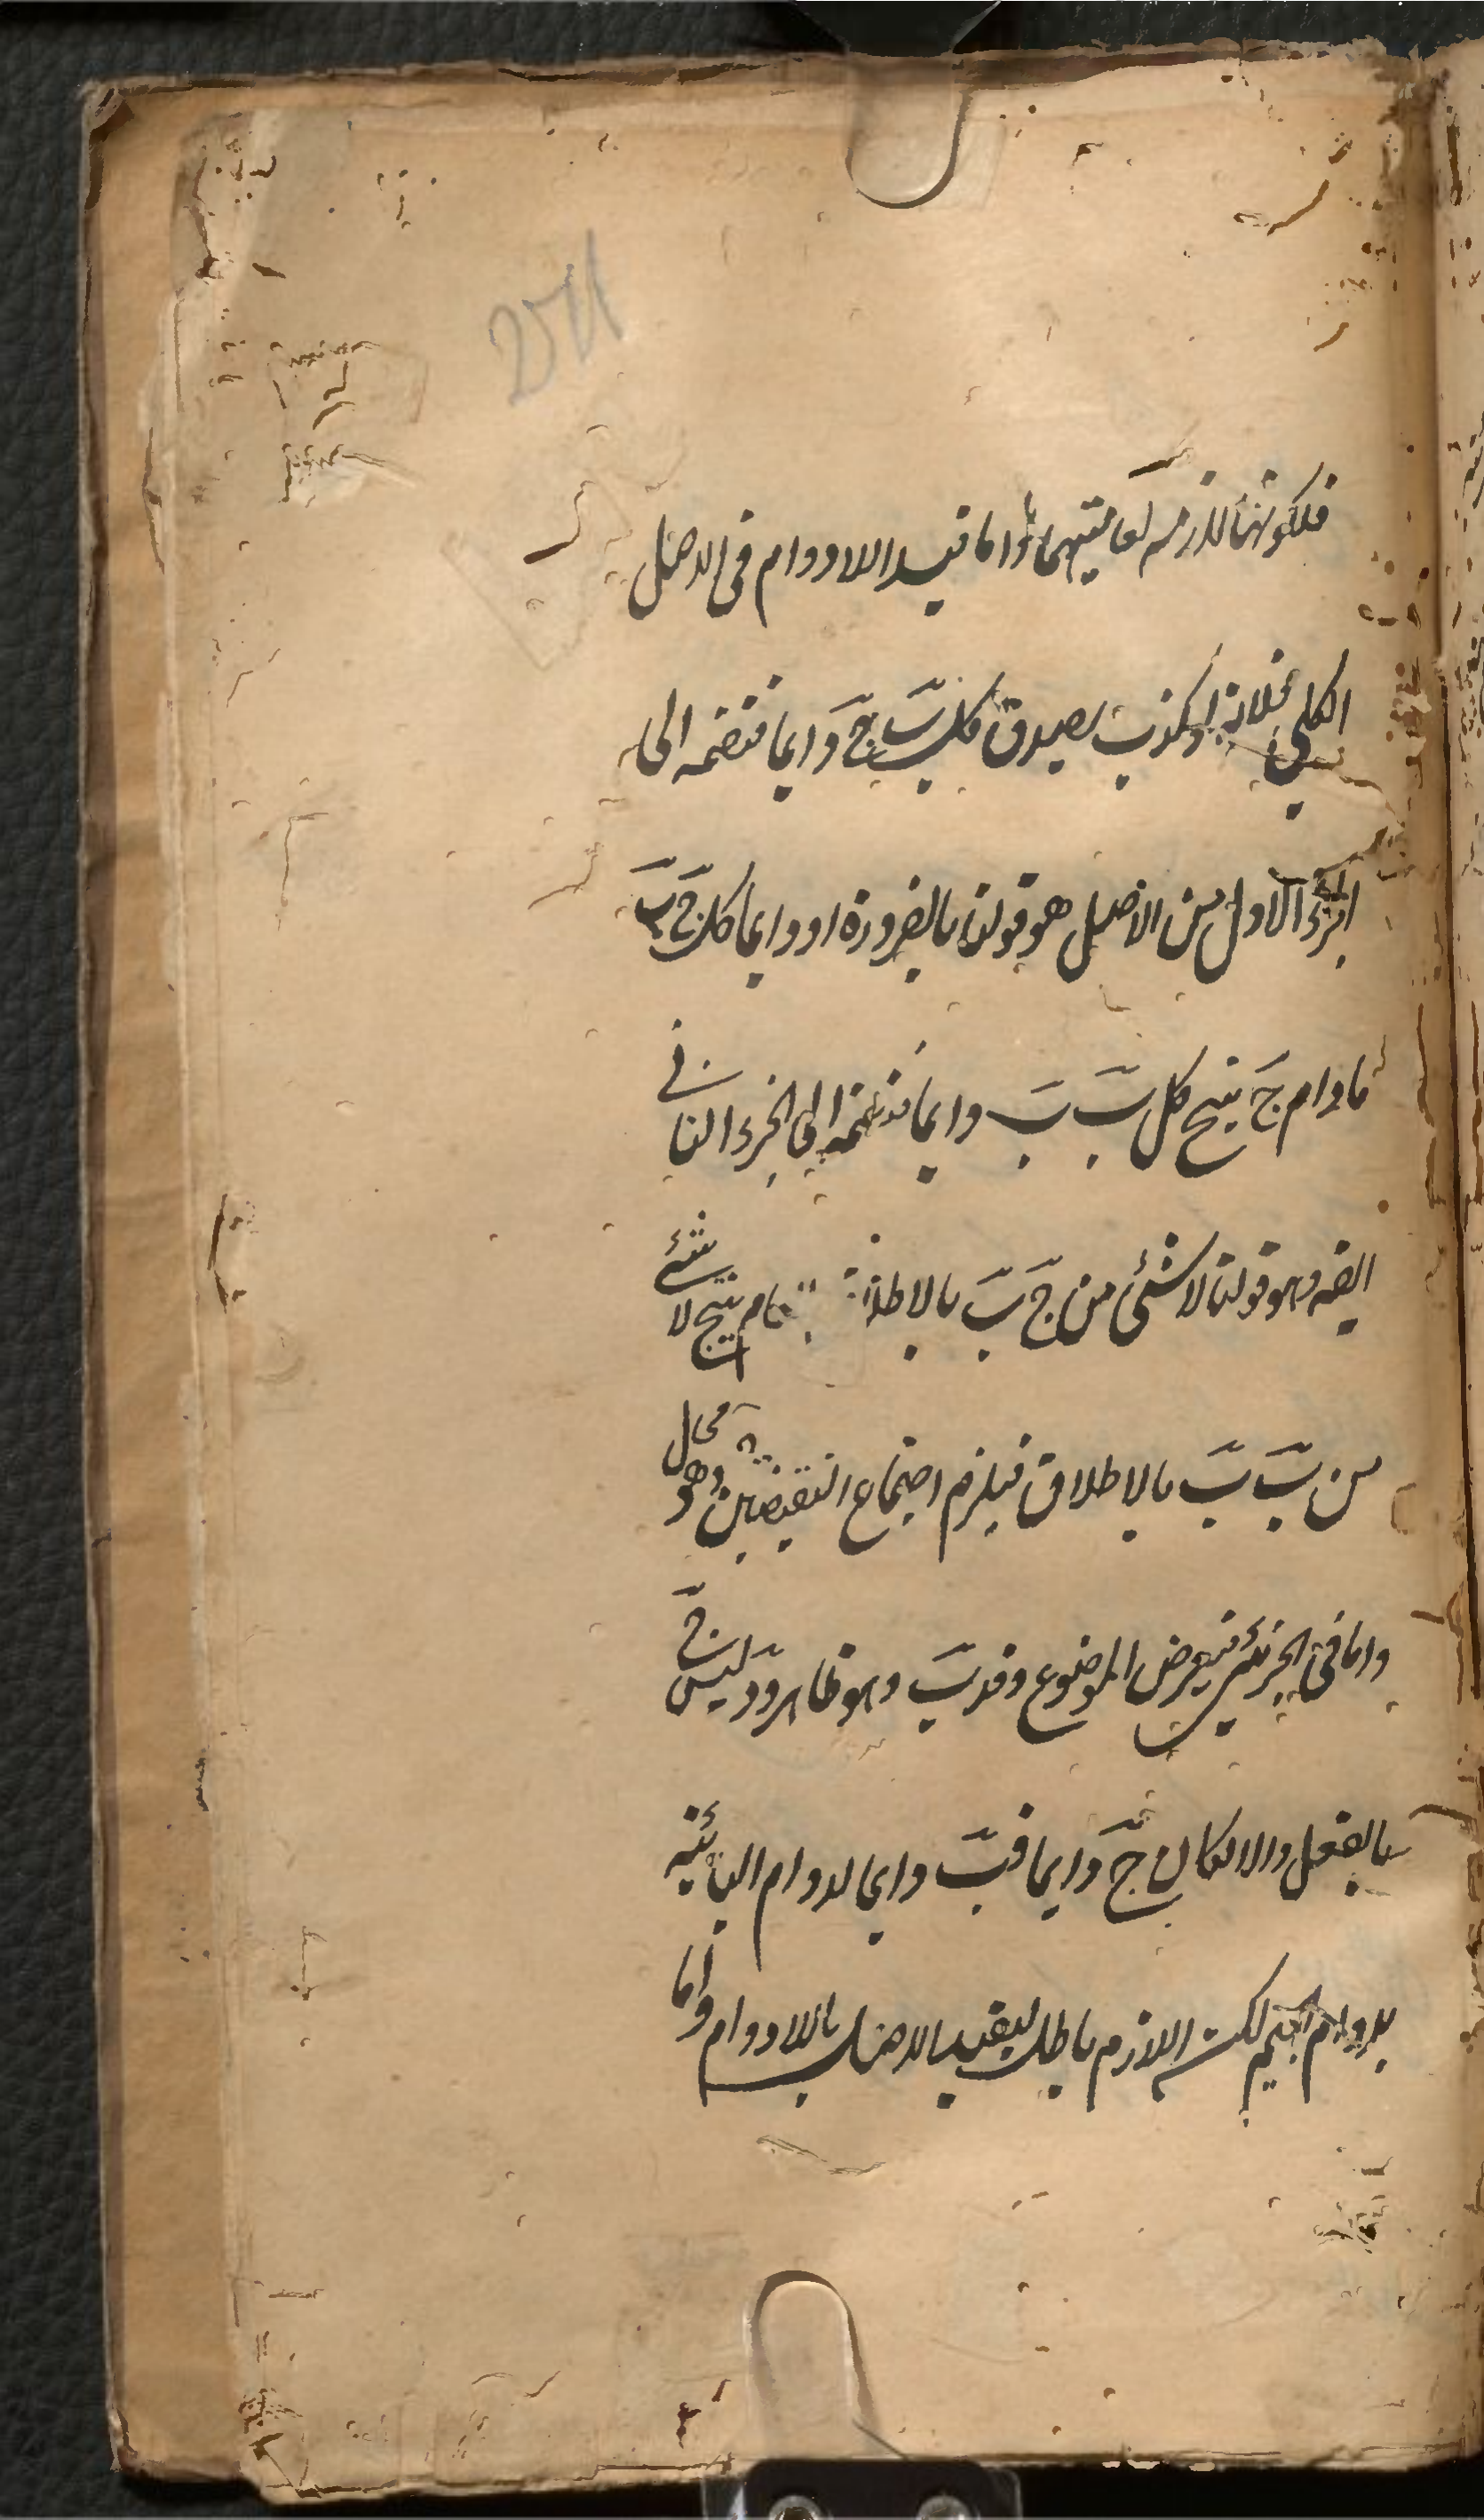 251
فلكونها لازمة لعامتيهما واما قيد اللادوام فى الاصل
الكلي فلانه لو كذب لصدق كل ب ج دايما فنضمه الى
الجزء الاول من الاصل هو قولنا بالضرورة او دايما كل ج ب
ما دام ج ينتج كل ب ب دايما فنضمه الى الجزء الثانى
ايضه وهو قولنا لا شئ من ج ب بالاطلاق العام ينتج لا شئ
من ب ب بالاطلاق فيلزم اجتماع النقيضين وهو محال
واما فى الجزئى فيفرض الموضوع د فد ب وهو ظاهر ود ليس ج
بالفعل والا لكان ج دايما فب دايما لدوام البائية
بدوام الجيم لكنه اللازم باطل لتقييد الاصل باللادوام واما